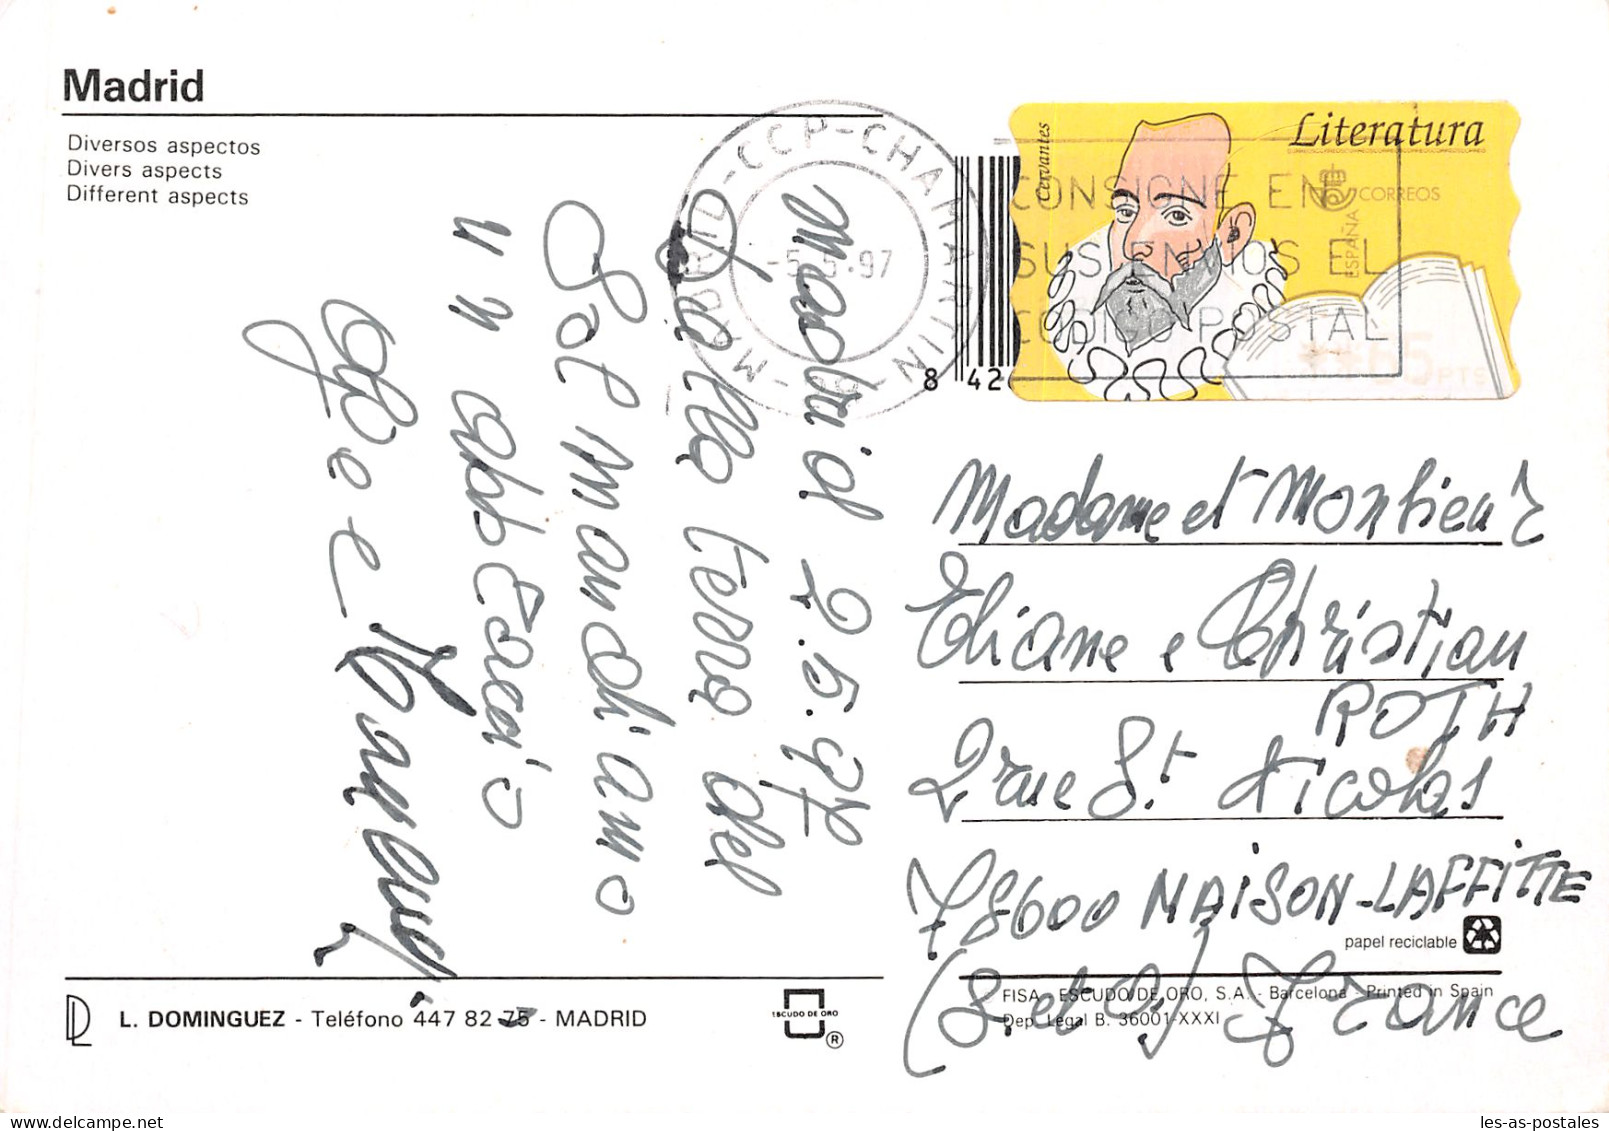 Madrid
Diversos aspectos
Divers aspects
Different aspects
MADRID-CCP-CHAMARTIN
-5.5.97
Cervantes
Literatura
CORREOS
ESPAÑA
CONSIGNE EN
SUS ENVIOS EL
CODIGO POSTAL
**65 PTS
8 42
Madrid 2.5.97
Dalla terra del
Sol mandiamo
un abbraccio
a e
Madame et Monsieur
Eliane e Christian
ROTH
2 rue St. Nicolas
78600 MAISON-LAFFITTE
(S.et O) France
papel reciclable
FISA - ESCUDO DE ORO, S.A. - Barcelona - Printed in Spain
Dep. Legal B. 36001-XXXI
L. DOMINGUEZ - Teléfono 447 82 75 - MADRID
ESCUDO DE ORO
®
les-as-postales